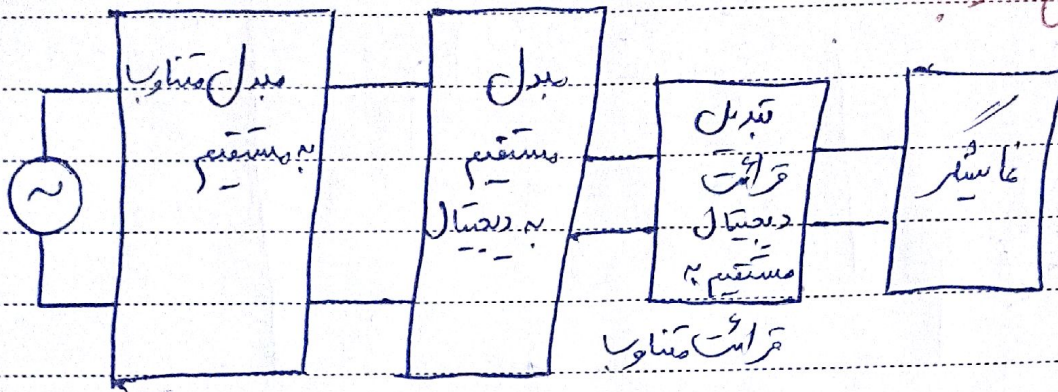 مبدل متناوب
به مستقیم
مبدل
مستقیم
به دیجیتال
تبدیل
قرائت
دیجیتال
مستقیم به
قرائت متناوب
نمایشگر
~